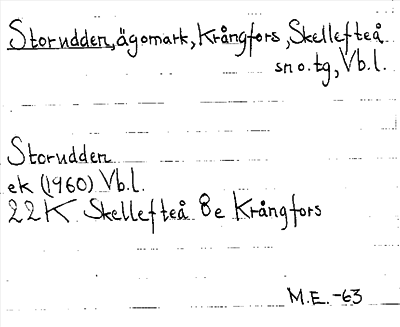 Storudden, ägomark, Krångfors, Skellefteå
sn o. tg, Vb.l.
Storudden
ek (1960) Vb.l.
22K Skellefteå 8e Krångfors
M.E. -63